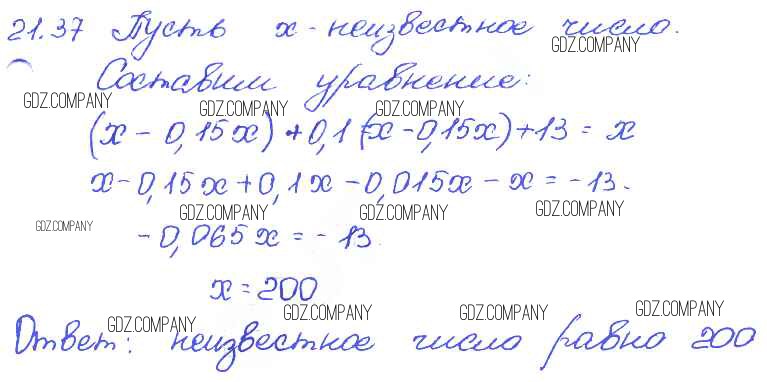 21.37 Пусть x - неизвестное число.
GDZ.COMPANY
Составим уравнение:
GDZ.COMPANY GDZ.COMPANY GDZ.COMPANY
(x - 0,15x) + 0,1(x - 0,15x) + 13 = x
x - 0,15x + 0,1x - 0,015x - x = -13.
GDZ.COMPANY GDZ.COMPANY GDZ.COMPANY GDZ.COMPANY
-0,065x = -13.
x = 200
GDZ.COMPANY GDZ.COMPANY GDZ.COMPANY GDZ.COMPANY
Ответ: неизвестное число равно 200